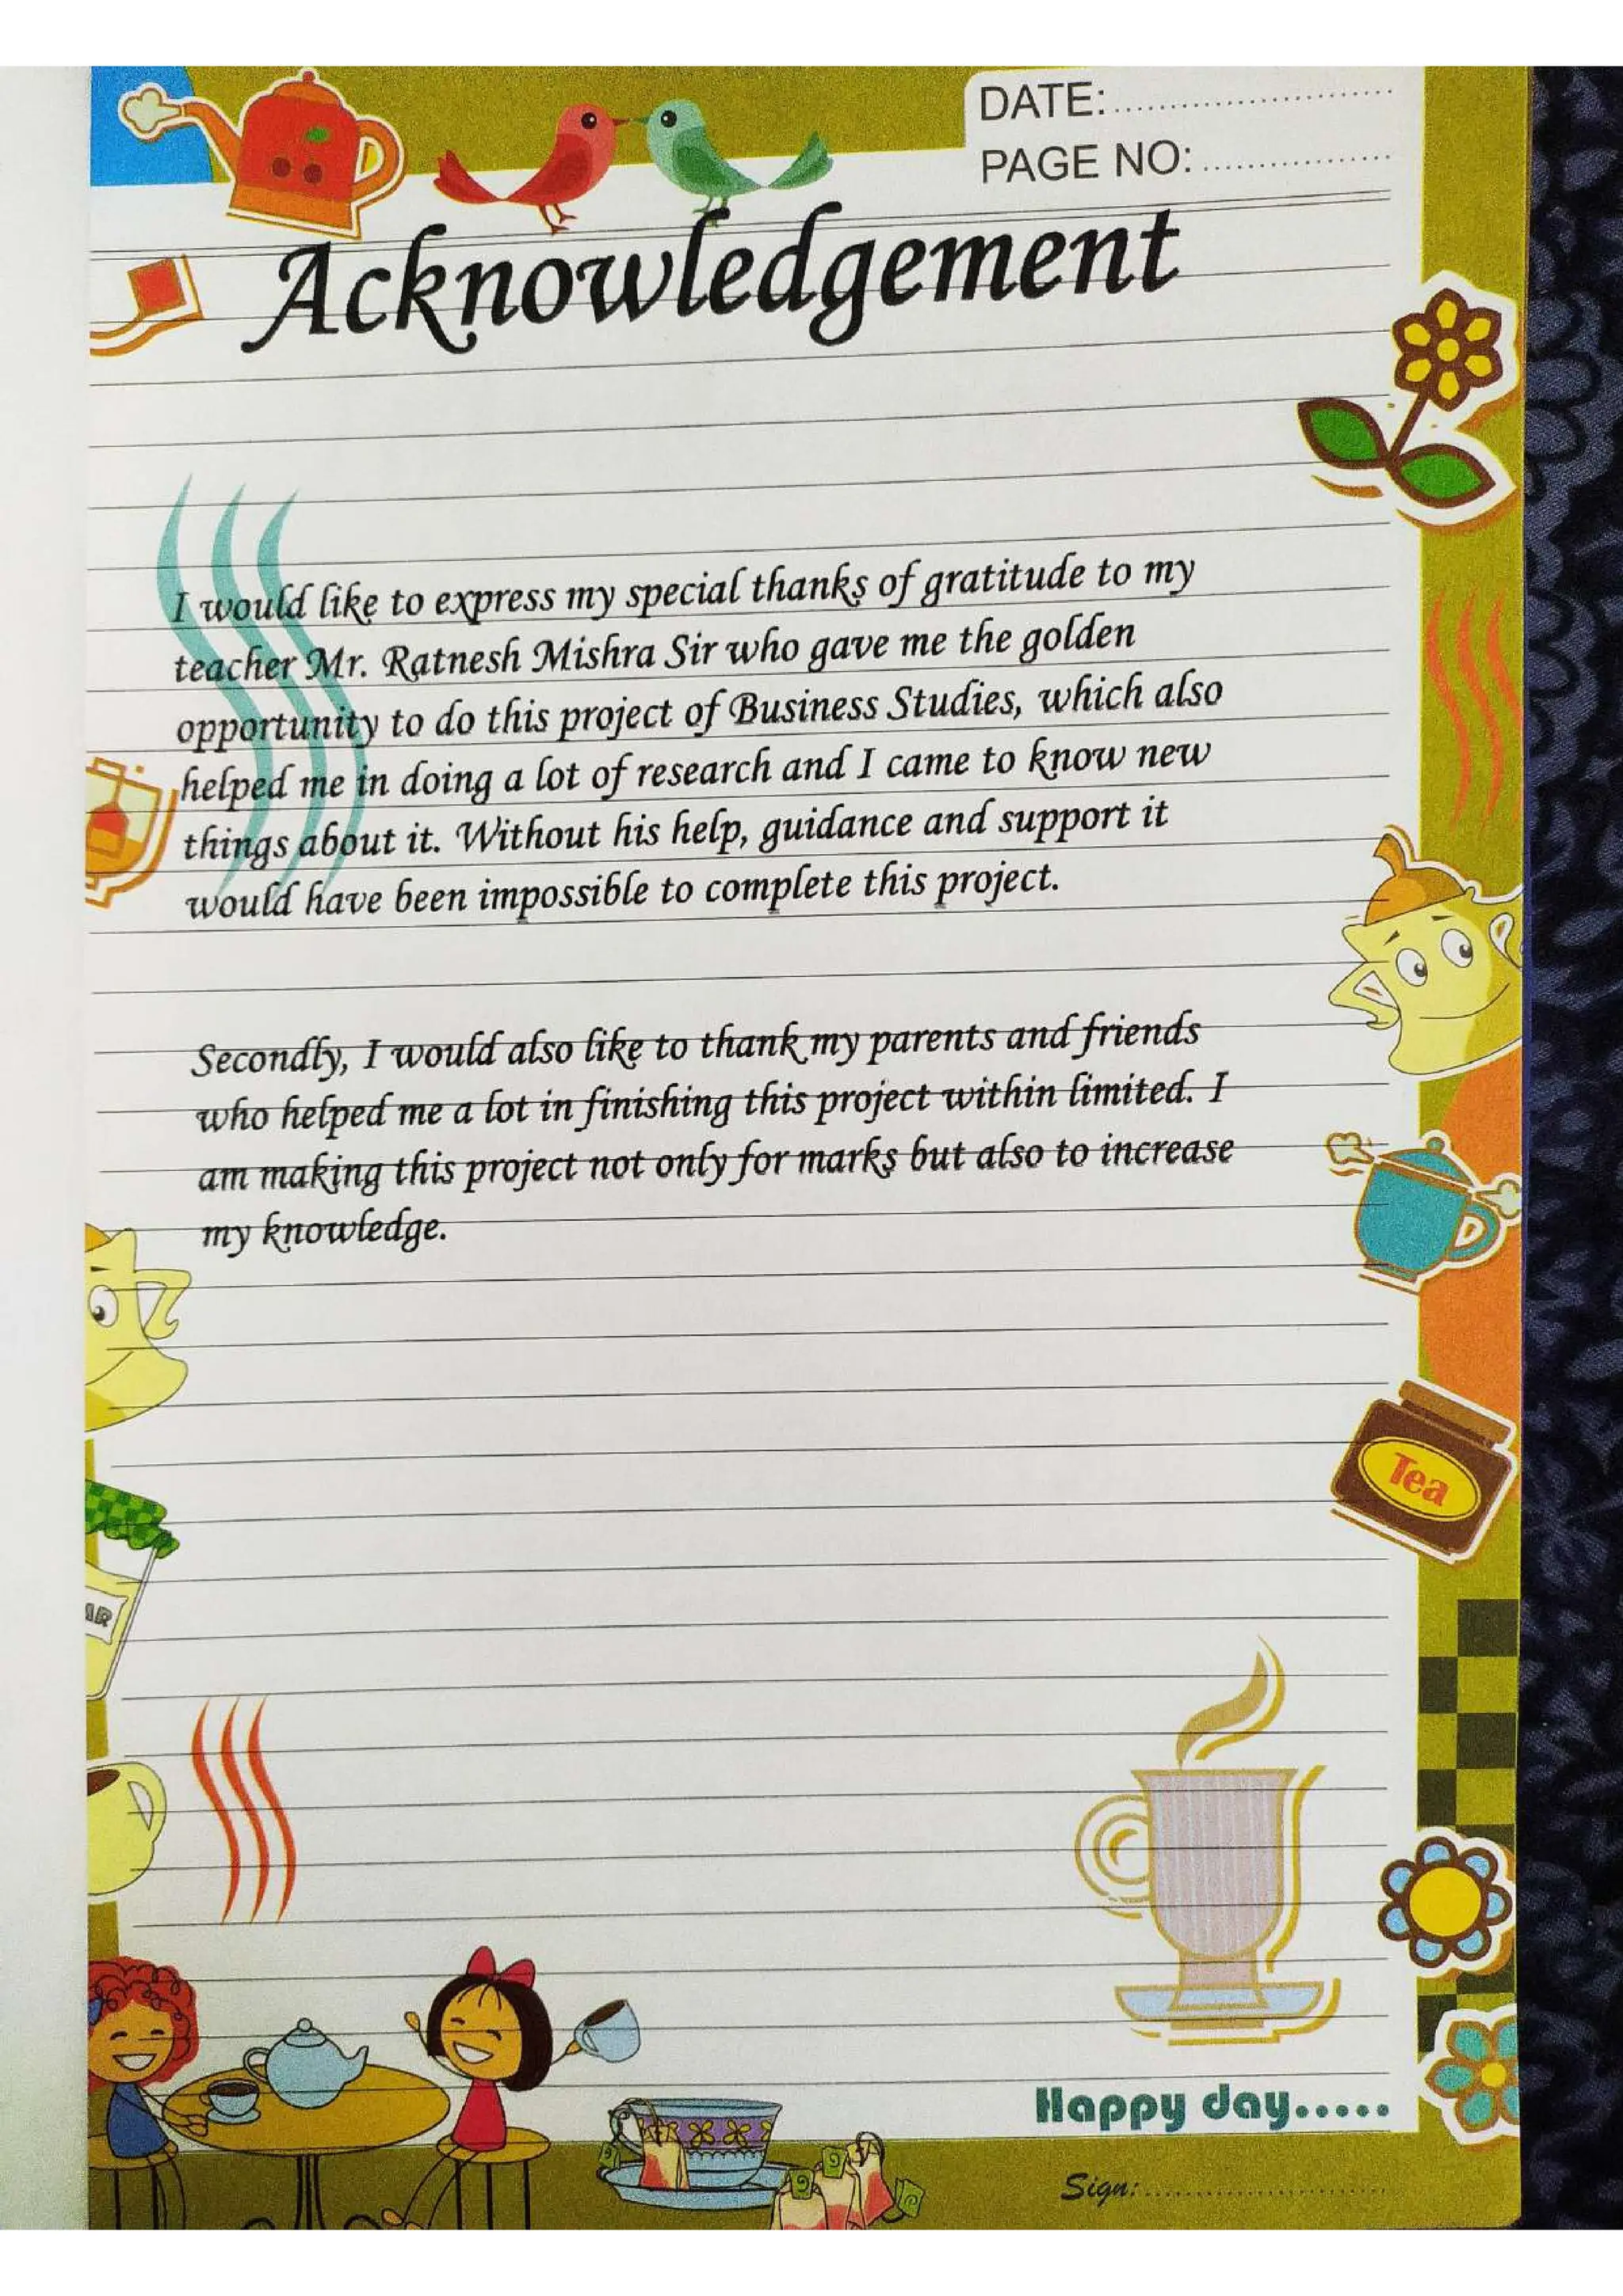 DATE:..........................
PAGE NO: ..................
Acknowledgement
I would like to express my special thanks of gratitude to my
teacher Mr. Ratnesh Mishra Sir who gave me the golden
opportunity to do this project of Business Studies, which also
helped me in doing a lot of research and I came to know new
things about it. Without his help, guidance and support it
would have been impossible to complete this project.
Secondly, I would also like to thank my parents and friends
who helped me a lot in finishing this project within limited. I
am making this project not only for marks but also to increase
my knowledge.
Tea
AR
Happy day.....
Sign:..........................